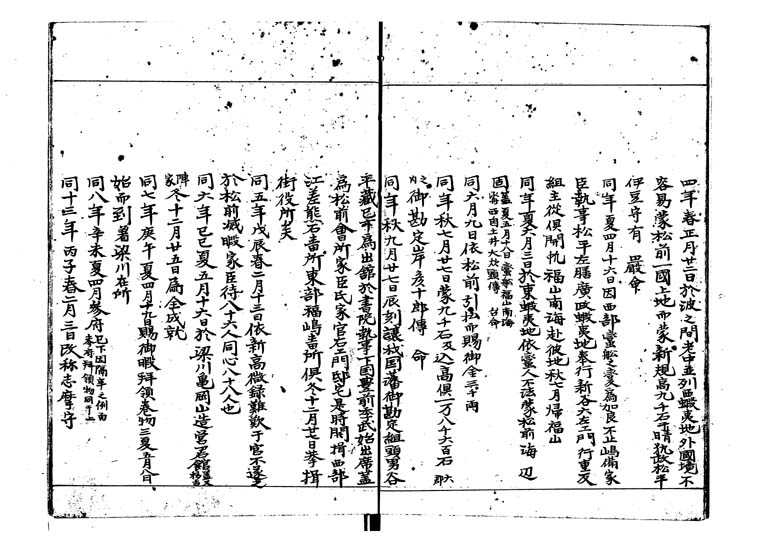 四年春正月廿二日於波之間老中並列曰蝦夷地外國境不
容易蒙松前一國上地而蒙新規高九千石于時執政松平
伊豆守有嚴命
同年夏四月十六日因西部蠻舩之変為加良不止嶋備家
臣執事松平左膳廣政蝦夷地奉行新谷六左エ門行重及
組主從俱開帆福山南海赴彼地秋六月帰福山
同年夏六月三日於東蝦夷地依蠻人不法蒙松前海邊
固
同六月九日依松前引拂而賜御金三千両
同年秋七月廿七日蒙九千石及込高俱一万八千六百石
御勘定岸彦十郎傳命
同年秋九月廿七日辰刻讓城国藩御勘定組頭男谷
平藏已下為出舘於書院執事下国豊前季武始出席蓋
為松前會所家臣氏家官左エ門邸宅是時開揖西部
江差熊石番所東部福嶋番所俱冬十二月廿七日挙揖
街役所矣
同五年戊辰春二月十三日依新高微録難歎于官不遂之
於松前减暇家臣待八十六人同心八十八人也
同六年己巳夏五月十六日於梁川亀岡山造営居館
冬十二月廿五日為全成就
同七年庚午夏四月十九日賜御暇拜領巻物三夏五月八日
始而到着梁川在所
同八年辛未夏四月参府
同十三年丙子春二月三日改称志摩守